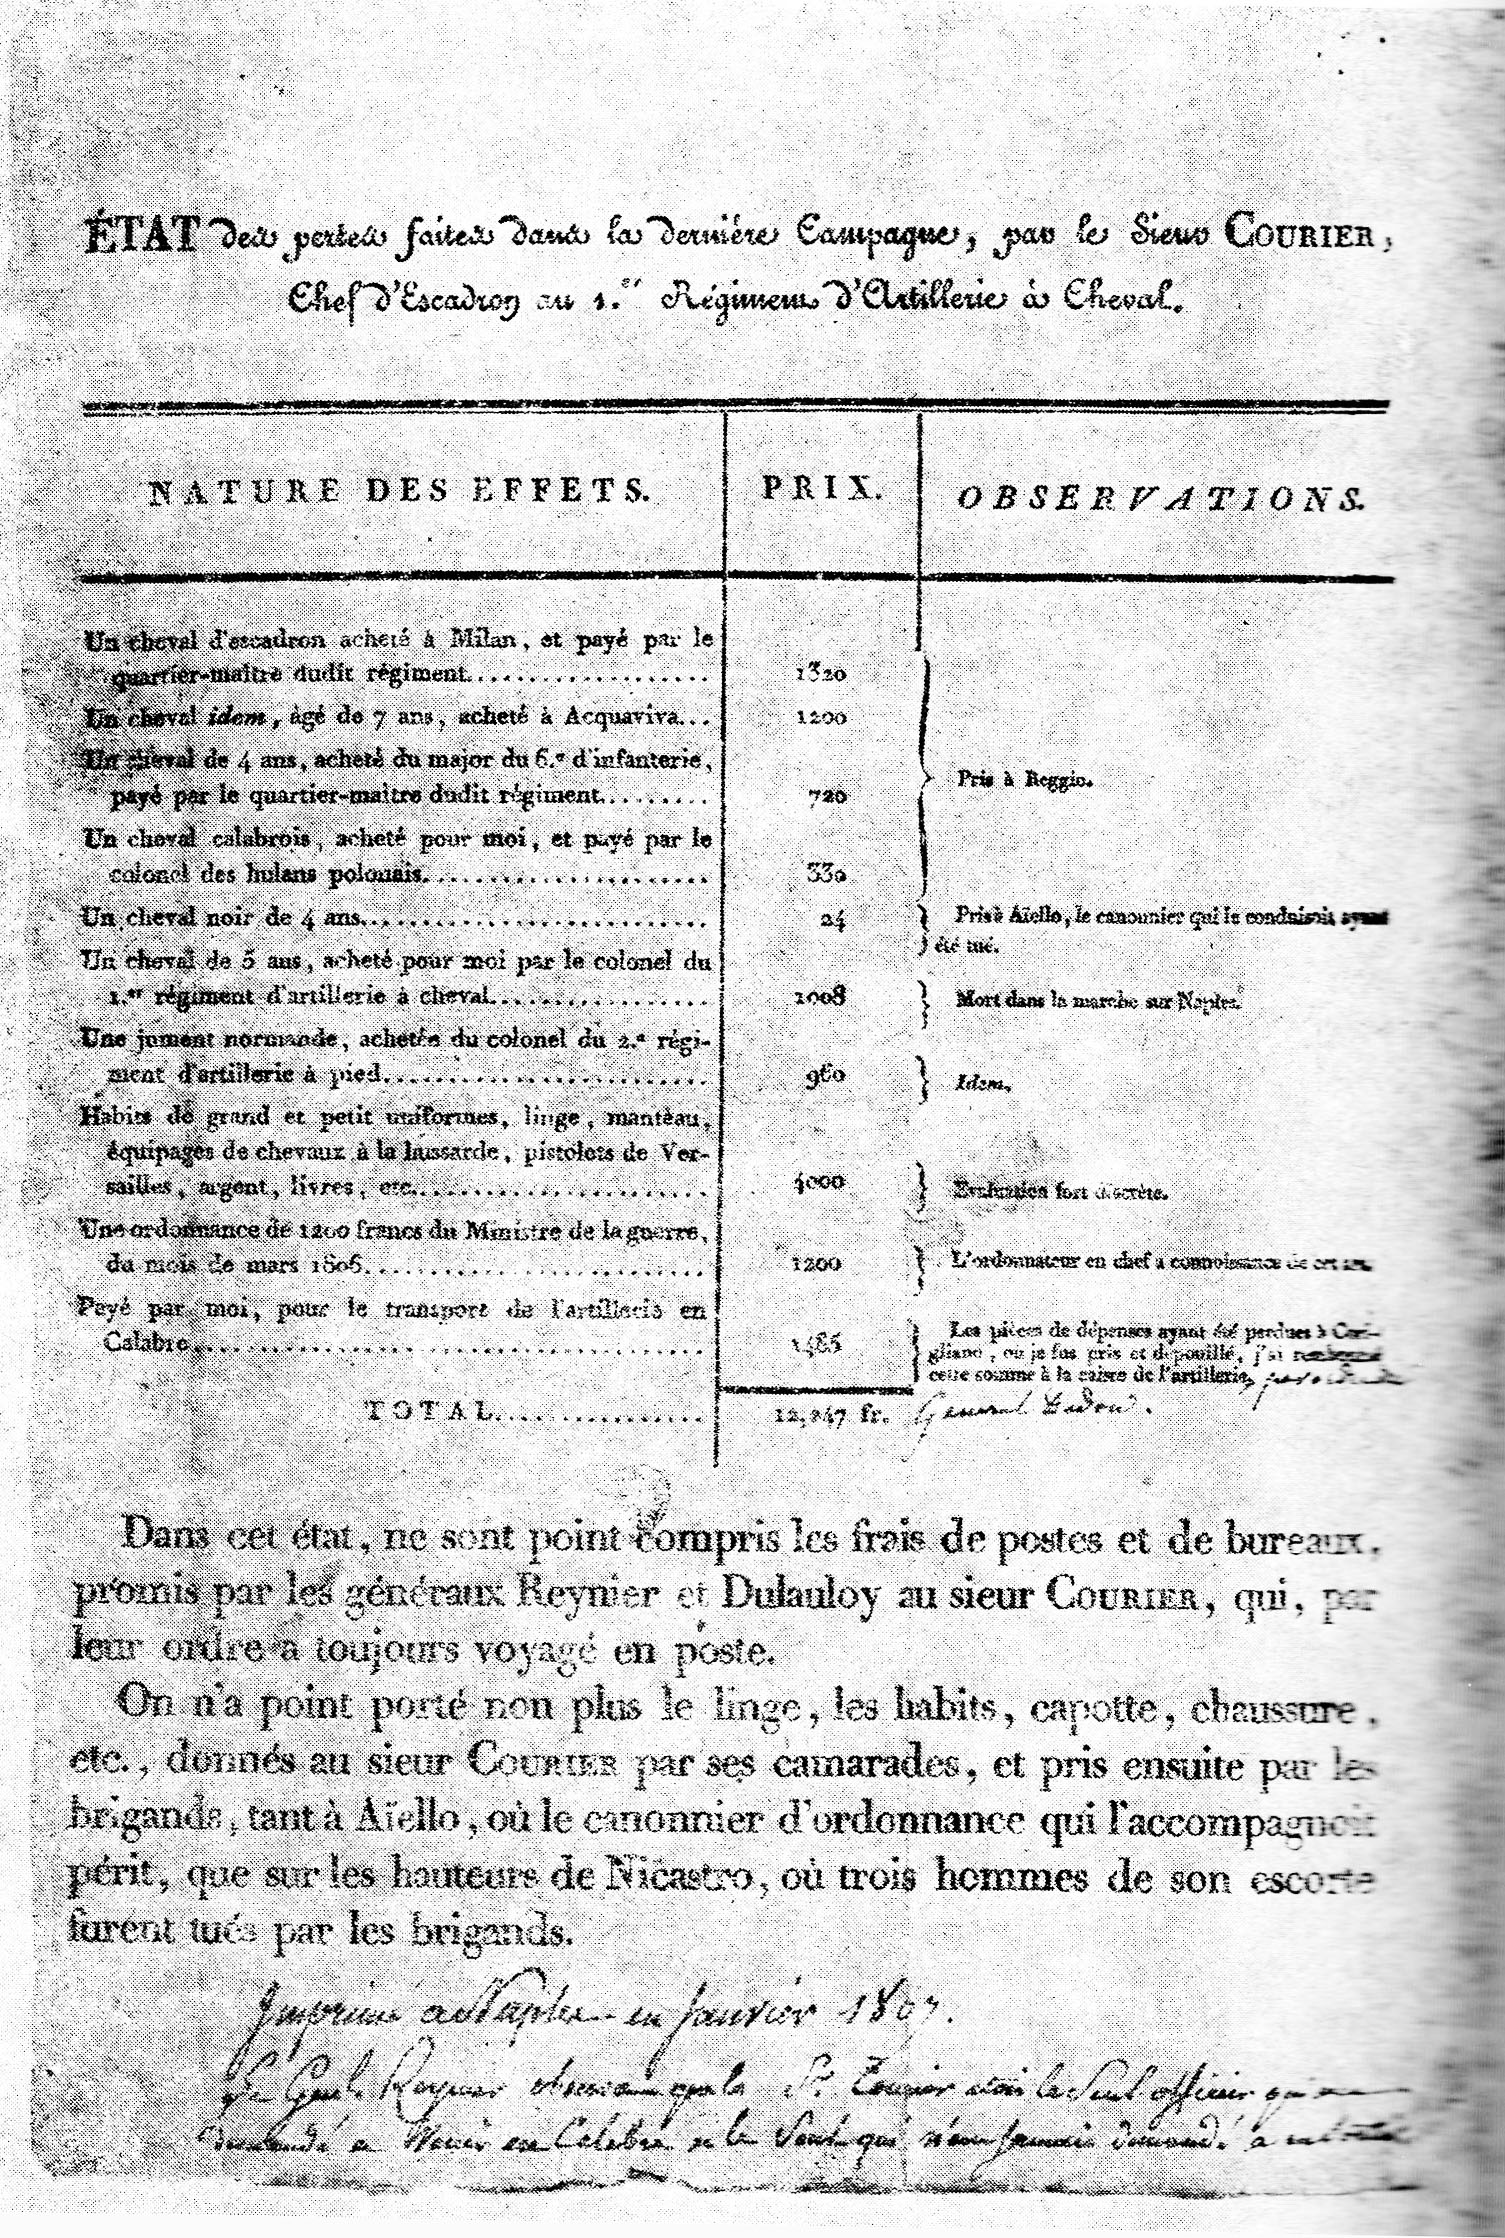 ÉTAT des pertes faites dans la dernière Campagne, par le Sieur COURIER,
Chef d'Escadron au 1.er Régiment d'Artillerie à Cheval.
NATURE DES EFFETS. PRIX. OBSERVATIONS.
Un cheval d'escadron acheté à Milan, et payé par le
quartier-maître dudit régiment.................... 1320
Un cheval idem, âgé de 7 ans, acheté à Acquaviva... 1200
Un cheval de 4 ans, acheté du major du 6.e d'infanterie,
Pris à Reggio.
payé par le quartier-maître dudit régiment......... 720
Un cheval calabrois, acheté pour moi, et payé par le
colonel des hulans polonais....................... 330
Un cheval noir de 4 ans............................ 24 Pris à Aïello, le canonnier qui le conduisoit ayant
été tué.
Un cheval de 5 ans, acheté pour moi par le colonel du
1.er régiment d'artillerie à cheval.................. 1008 Mort dans la marche sur Naples.
Une jument normande, achetée du colonel du 2.e régi-
ment d'artillerie à pied........................... 960 Idem.
Habits de grand et petit uniformes, linge, manteau,
équipages de chevaux à la hussarde, pistolets de Ver-
sailles, argent, livres, etc......................... 4000 Evaluation fort discrète.
Une ordonnance de 1200 francs du Ministre de la guerre,
du mois de mars 1806............................ 1200 L'ordonnateur en chef a connoissance de cet
Payé par moi, pour le transport de l'artillerie en
Calabre.......................................... 1485 Les pièces de dépenses ayant été perdues à Cori-
gliano, où je fus pris et dépouillé, j'ai remboursé
cette somme à la caisse de l'artillerie, par
TOTAL.................. 12,247 fr. General Dedon.
Dans cet état, ne sont point compris les frais de postes et de bureaux,
promis par les généraux Reynier et Dulauloy au sieur COURIER, qui, par
leur ordre a toujours voyagé en poste.
On n'a point porté non plus le linge, les habits, capotte, chaussure,
etc., donnés au sieur COURIER par ses camarades, et pris ensuite par les
brigands, tant à Aïello, où le canonnier d'ordonnance qui l'accompagnoit
périt, que sur les hauteurs de Nicastro, où trois hommes de son escorte
furent tués par les brigands.
Imprimé à Naples en Janvier 1807.
Le Gnl. Reynier que le Sr. Courier le seul officier qui
demandé a en Calabre et le seul qui jamais demandé a